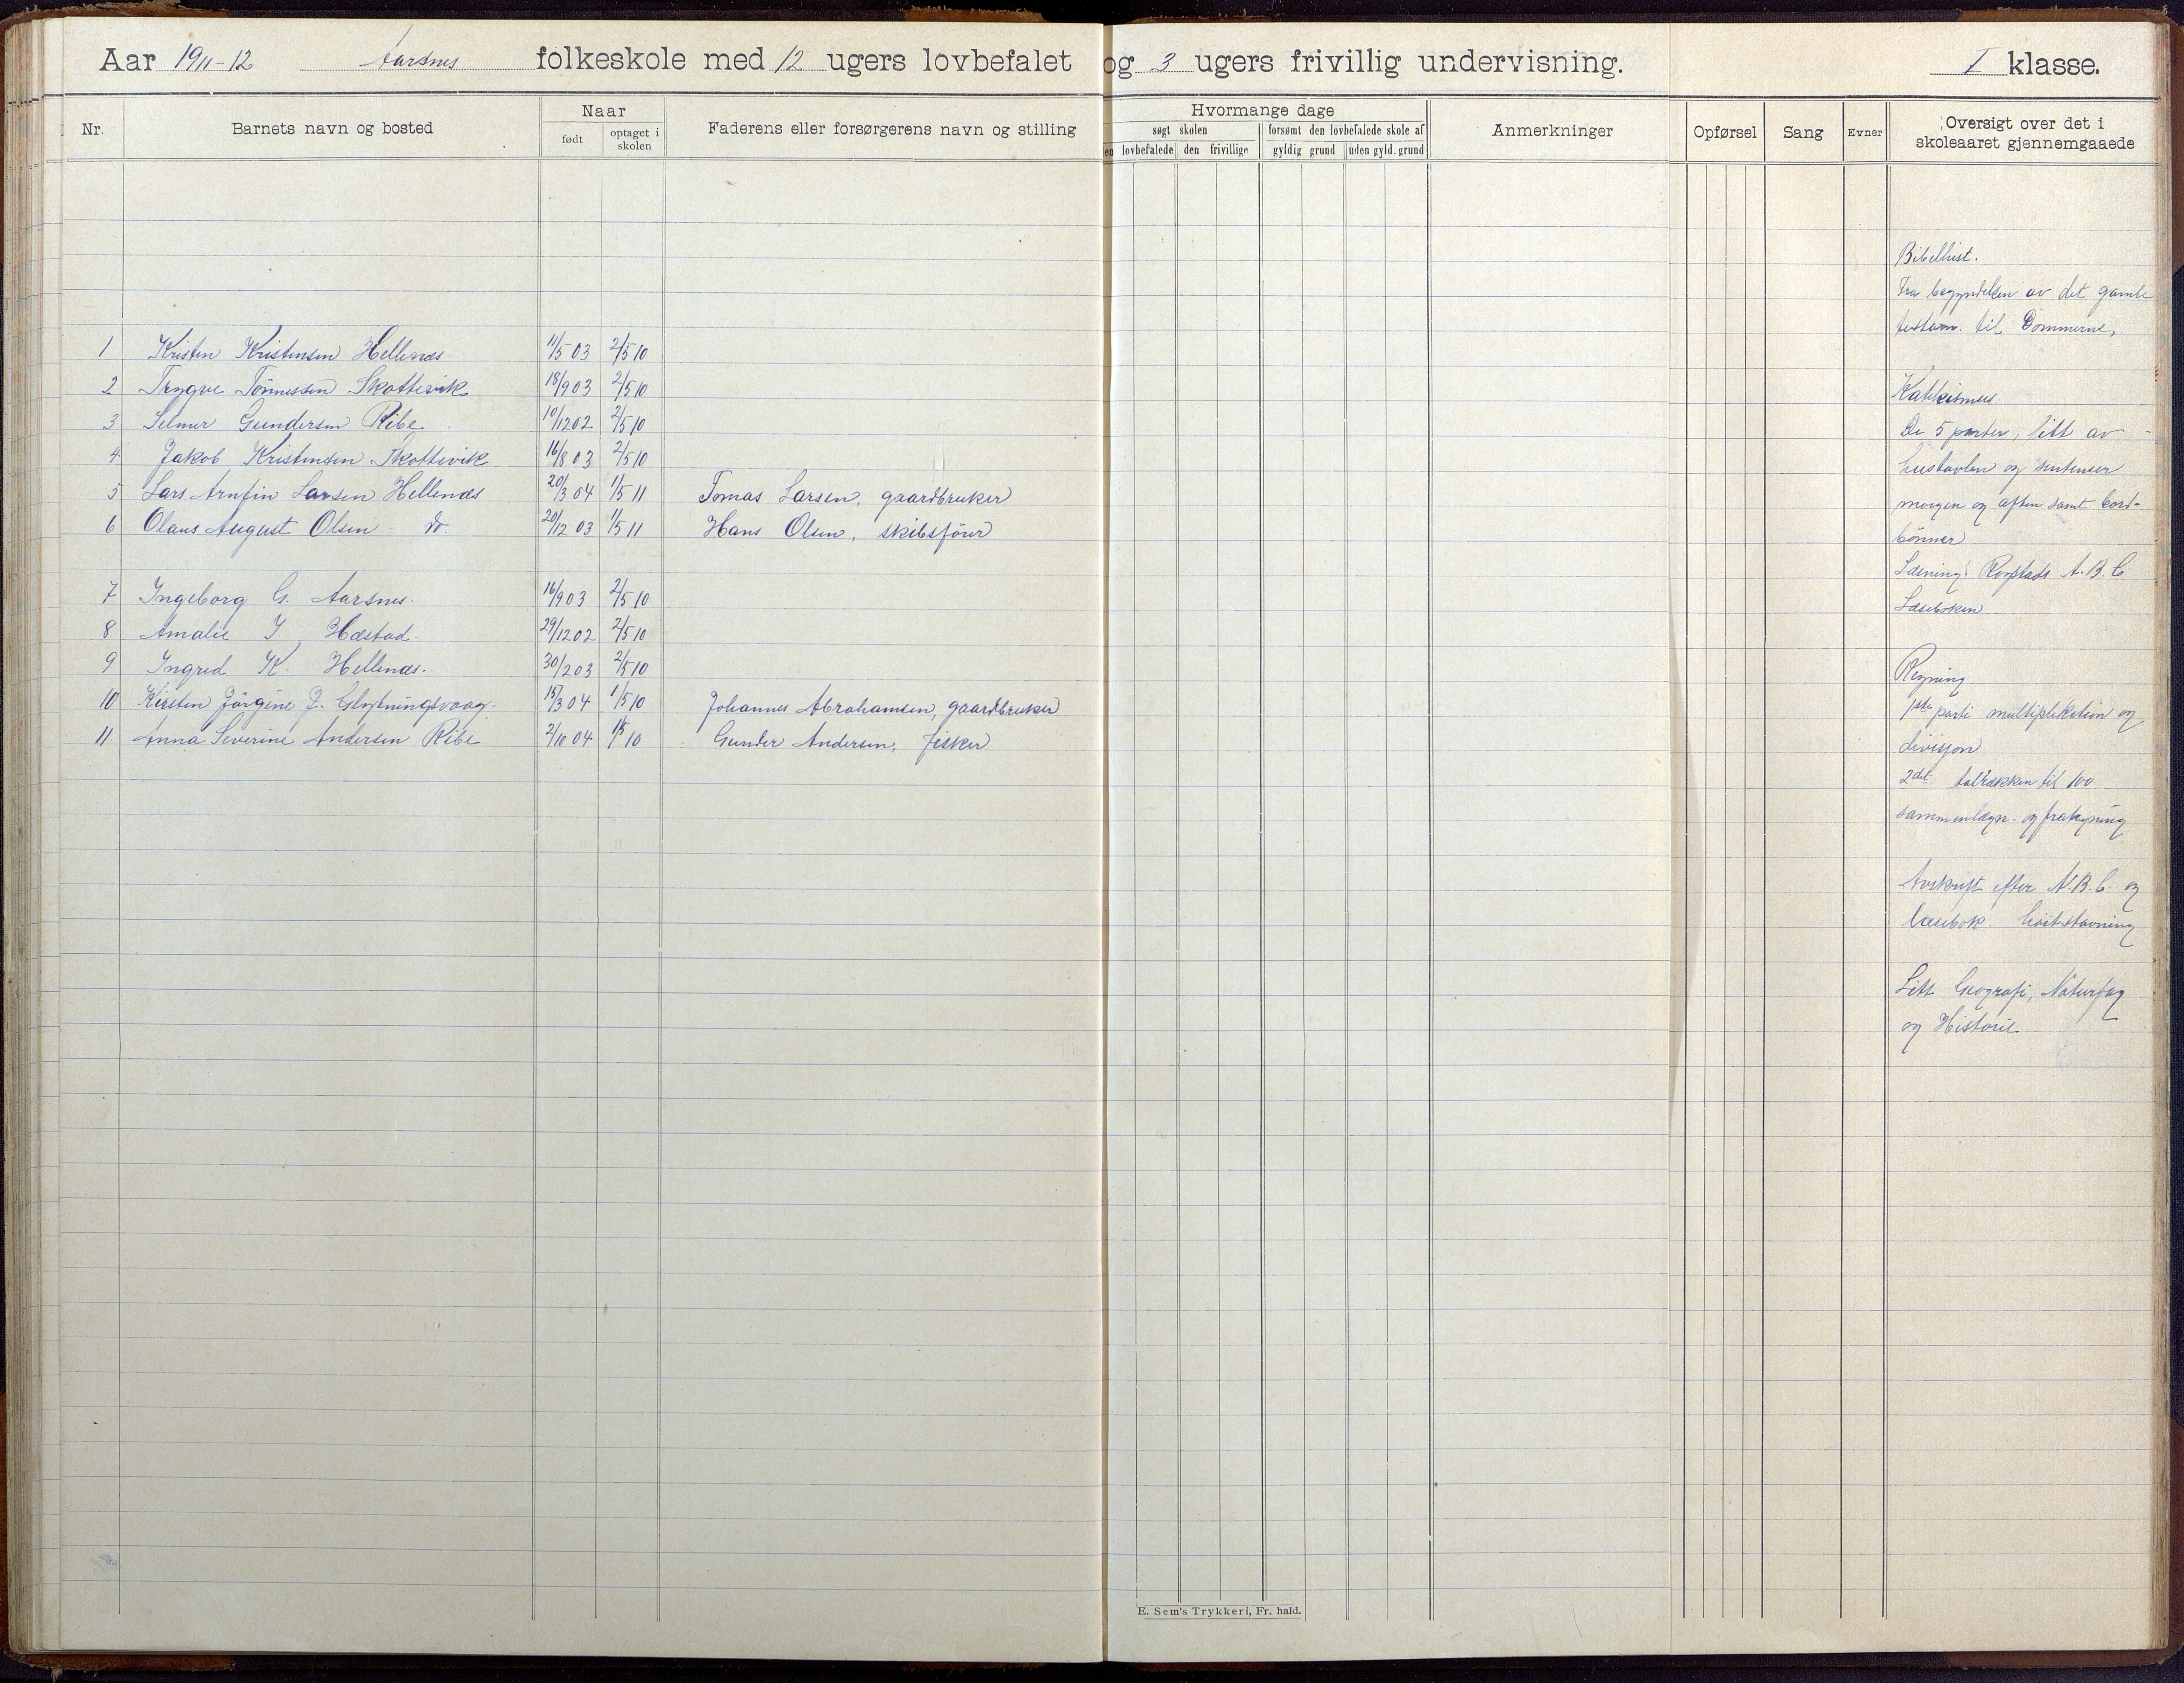 Aar 1911-12 Aarsnes folkeskole med 12 ugers lovbefalet og 3 ugers frivillig undervisning. I klasse.
Nr. Barnets navn og bosted Naar født optaget i skolen Faderens eller forsørgerens navn og stilling
Hvormange dage
søgt skolen forsømt den lovbefalede skole af
lovbefalede den frivillige gyldig grund uden gyld. grund
Anmerkninger Opførsel Sang Evner
Oversigt over det i
skoleaaret gjennemgaaede
1 Kristen Kristensen Hellenæs 11/5 03 2/5 10
2 Trygve Tönnessen Skottevik 18/9 03 2/5 10
3 Selmer Gundersen Ribe 10/12 02 2/5 10
4 Jakob Kristensen Skottevik 16/8 03 2/5 10
5 Lars Arnfin Larsen Hellenæs 20/3 04 1/5 11 Tomas Larsen, gaardbruker
6 Olaus August Olsen do. 20/12 03 1/5 11 Hans Olsen, skibsförer
7 Ingeborg G. Aarsnes. 16/9 03 2/5 10
8 Amalie J. Hæstad. 29/12 02 2/5 10
9 Ingred K. Hellenæs. 30/2 03 2/5 10
10 Kirsten Jörgine J. 15/3 04 1/5 10 Johannes Abrahamsen, gaardbruker
11 Anna Severine Andersen Ribe 2/10 04 1/5 10 Gunder Andersen, fisker
Bibelhist.
Fra begyndelsen av det gamle
testam. til Dommerne,
Katekismus
De 5 parter, litt av
hustavlen og sentenser
morgen og aften samt bord-
bönner
Læsning: Rogstads A.B.C
Læseboken
Regning
1ste parti multiplikation og
divisjon
2det talrækken til 100
sammenlægn. og fratrekning
Avskrift efter A.B.C. og
læsebok.
Litt Geografi, Naturfag
og Historie
E. Sem's Trykkeri, Fr. hald.